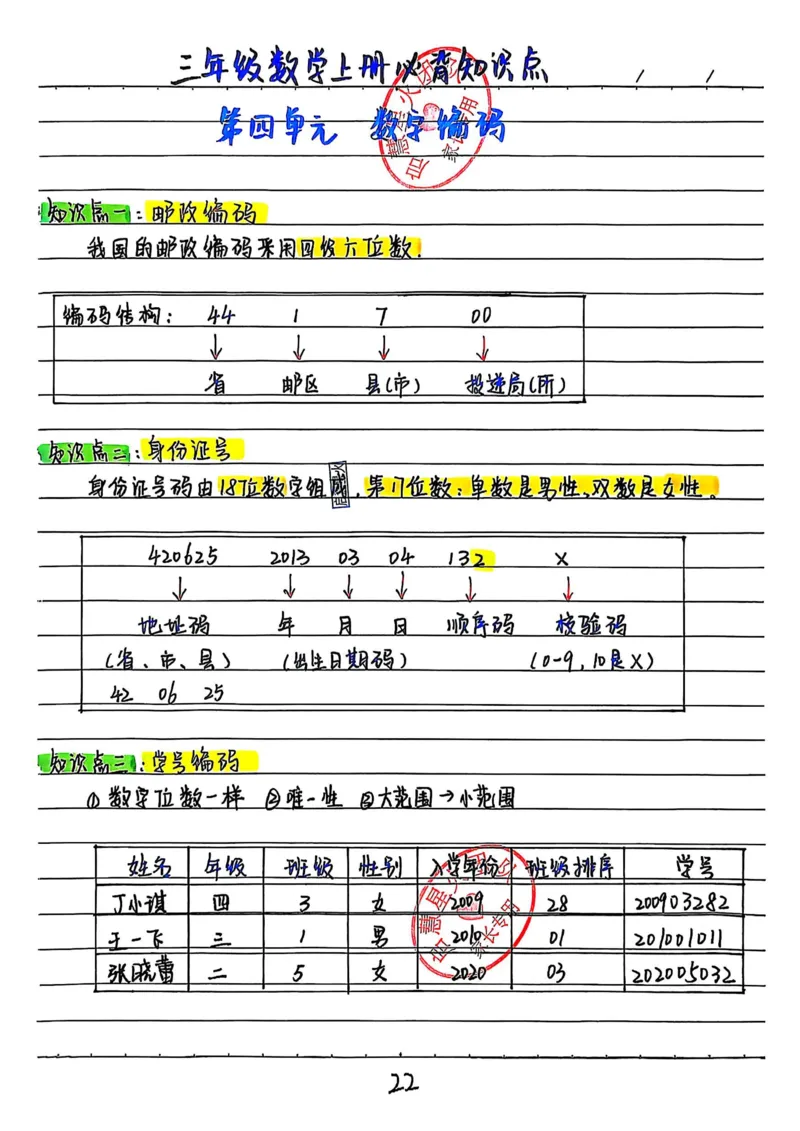 三年级数学上册必背知识点
第四单元 数字编码
知识点一：邮政编码
我国的邮政编码采用四级六位数.
编码结构： 44 1 7 00
↓ ↓ ↓ ↓
省 邮区 县(市) 投递局(所)
知识点三：身份证号
身份证号码由18位数字组成，第17位数：单数是男性、双数是女性。
420625 2013 03 04 132 X
↓ ↓ ↓ ↓ ↓ ↓
地址码 年 月 日 顺序码 校验码
(省、市、县) (出生日期码) (0-9，10是X)
42 06 25
知识点三：学号编码
① 数字位数一样 ②唯一性 ③大范围→小范围
姓名 年级 班级 性别 入学年份 班级排序 学号
丁小琪 四 3 女 2009 28 200903282
王一飞 三 1 男 2010 01 201001011
张晓蕾 二 5 女 2020 03 202005032
22